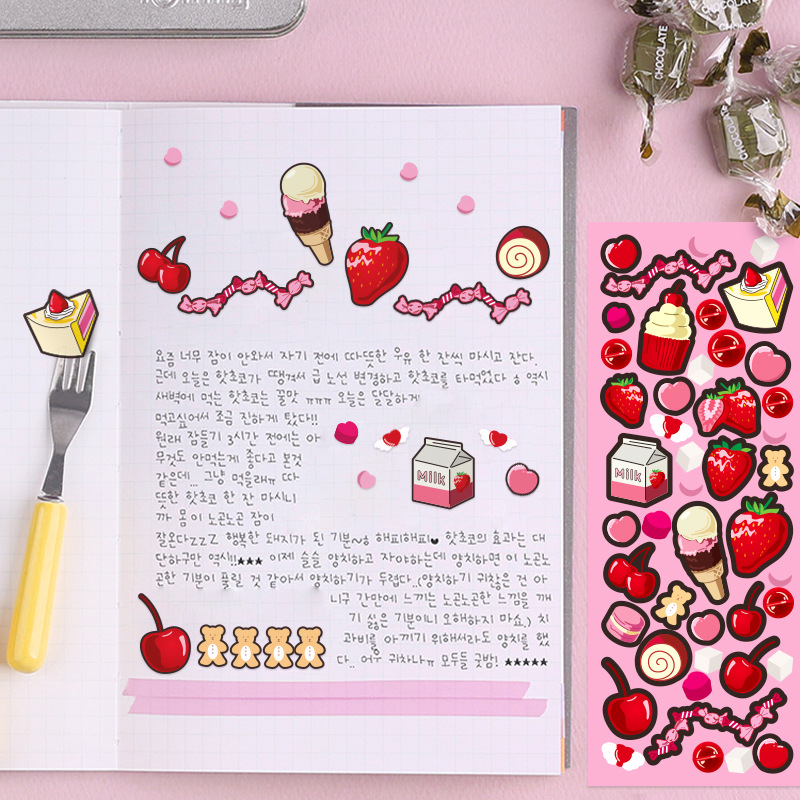 CHOCOLATE
CHOCOLATE
CHOCOLATE
요즘 너무 잠이 안와서 자기 전에 따뜻한 우유 한 잔씩 마시고 잔다.
근데 오늘은 핫초코가 땡겨서 급 노선 변경하고 핫초코를 타먹었다 ㅎ 역시
새벽에 먹는 핫초코는 꿀맛 ㅠㅠㅠ 오늘은 달달하게
먹고싶어서 조금 진하게 탔다!!
원래 잠들기 3시간 전에는 아
무것도 안먹는게 좋다고 본것
같은데.. 그냥 먹을래ㅠ 따
뜻한 핫초코 한 잔 마시니
까 몸이 노곤노곤 잠이
잘온다zzZ 행복한 돼지가 된 기분~!! 해피해피♥ 핫초코의 효과는 대
단하구만 역시!!★★★ 이제 슬슬 양치하고 자야하는데 양치하면 이 노곤노
곤한 기분이 풀릴 것 같아서 양치하기가 두렵다..(양치하기 귀찮은 건 아
니구 간만에 느끼는 노곤노곤한 느낌을 깨
기 싫은 기분이니 오해하지 마쇼.) 치
과비를 아끼기 위해서라도 양치를 했
다.. 어우 귀차나ㅠ 모두들 굿밤! ★★★★★
Milk
Milk